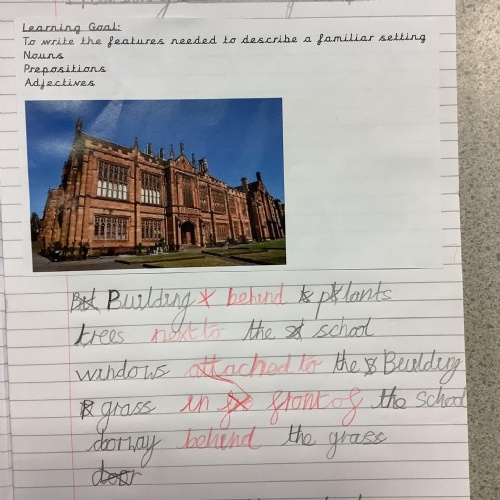 Learning Goal:
To write the features needed to describe a familiar setting
Nouns
Prepositions
Adjectives
Building behind plants
trees next to the school
windows attached to the Beuilding
grass in front of the school
dorway behind the grass
door